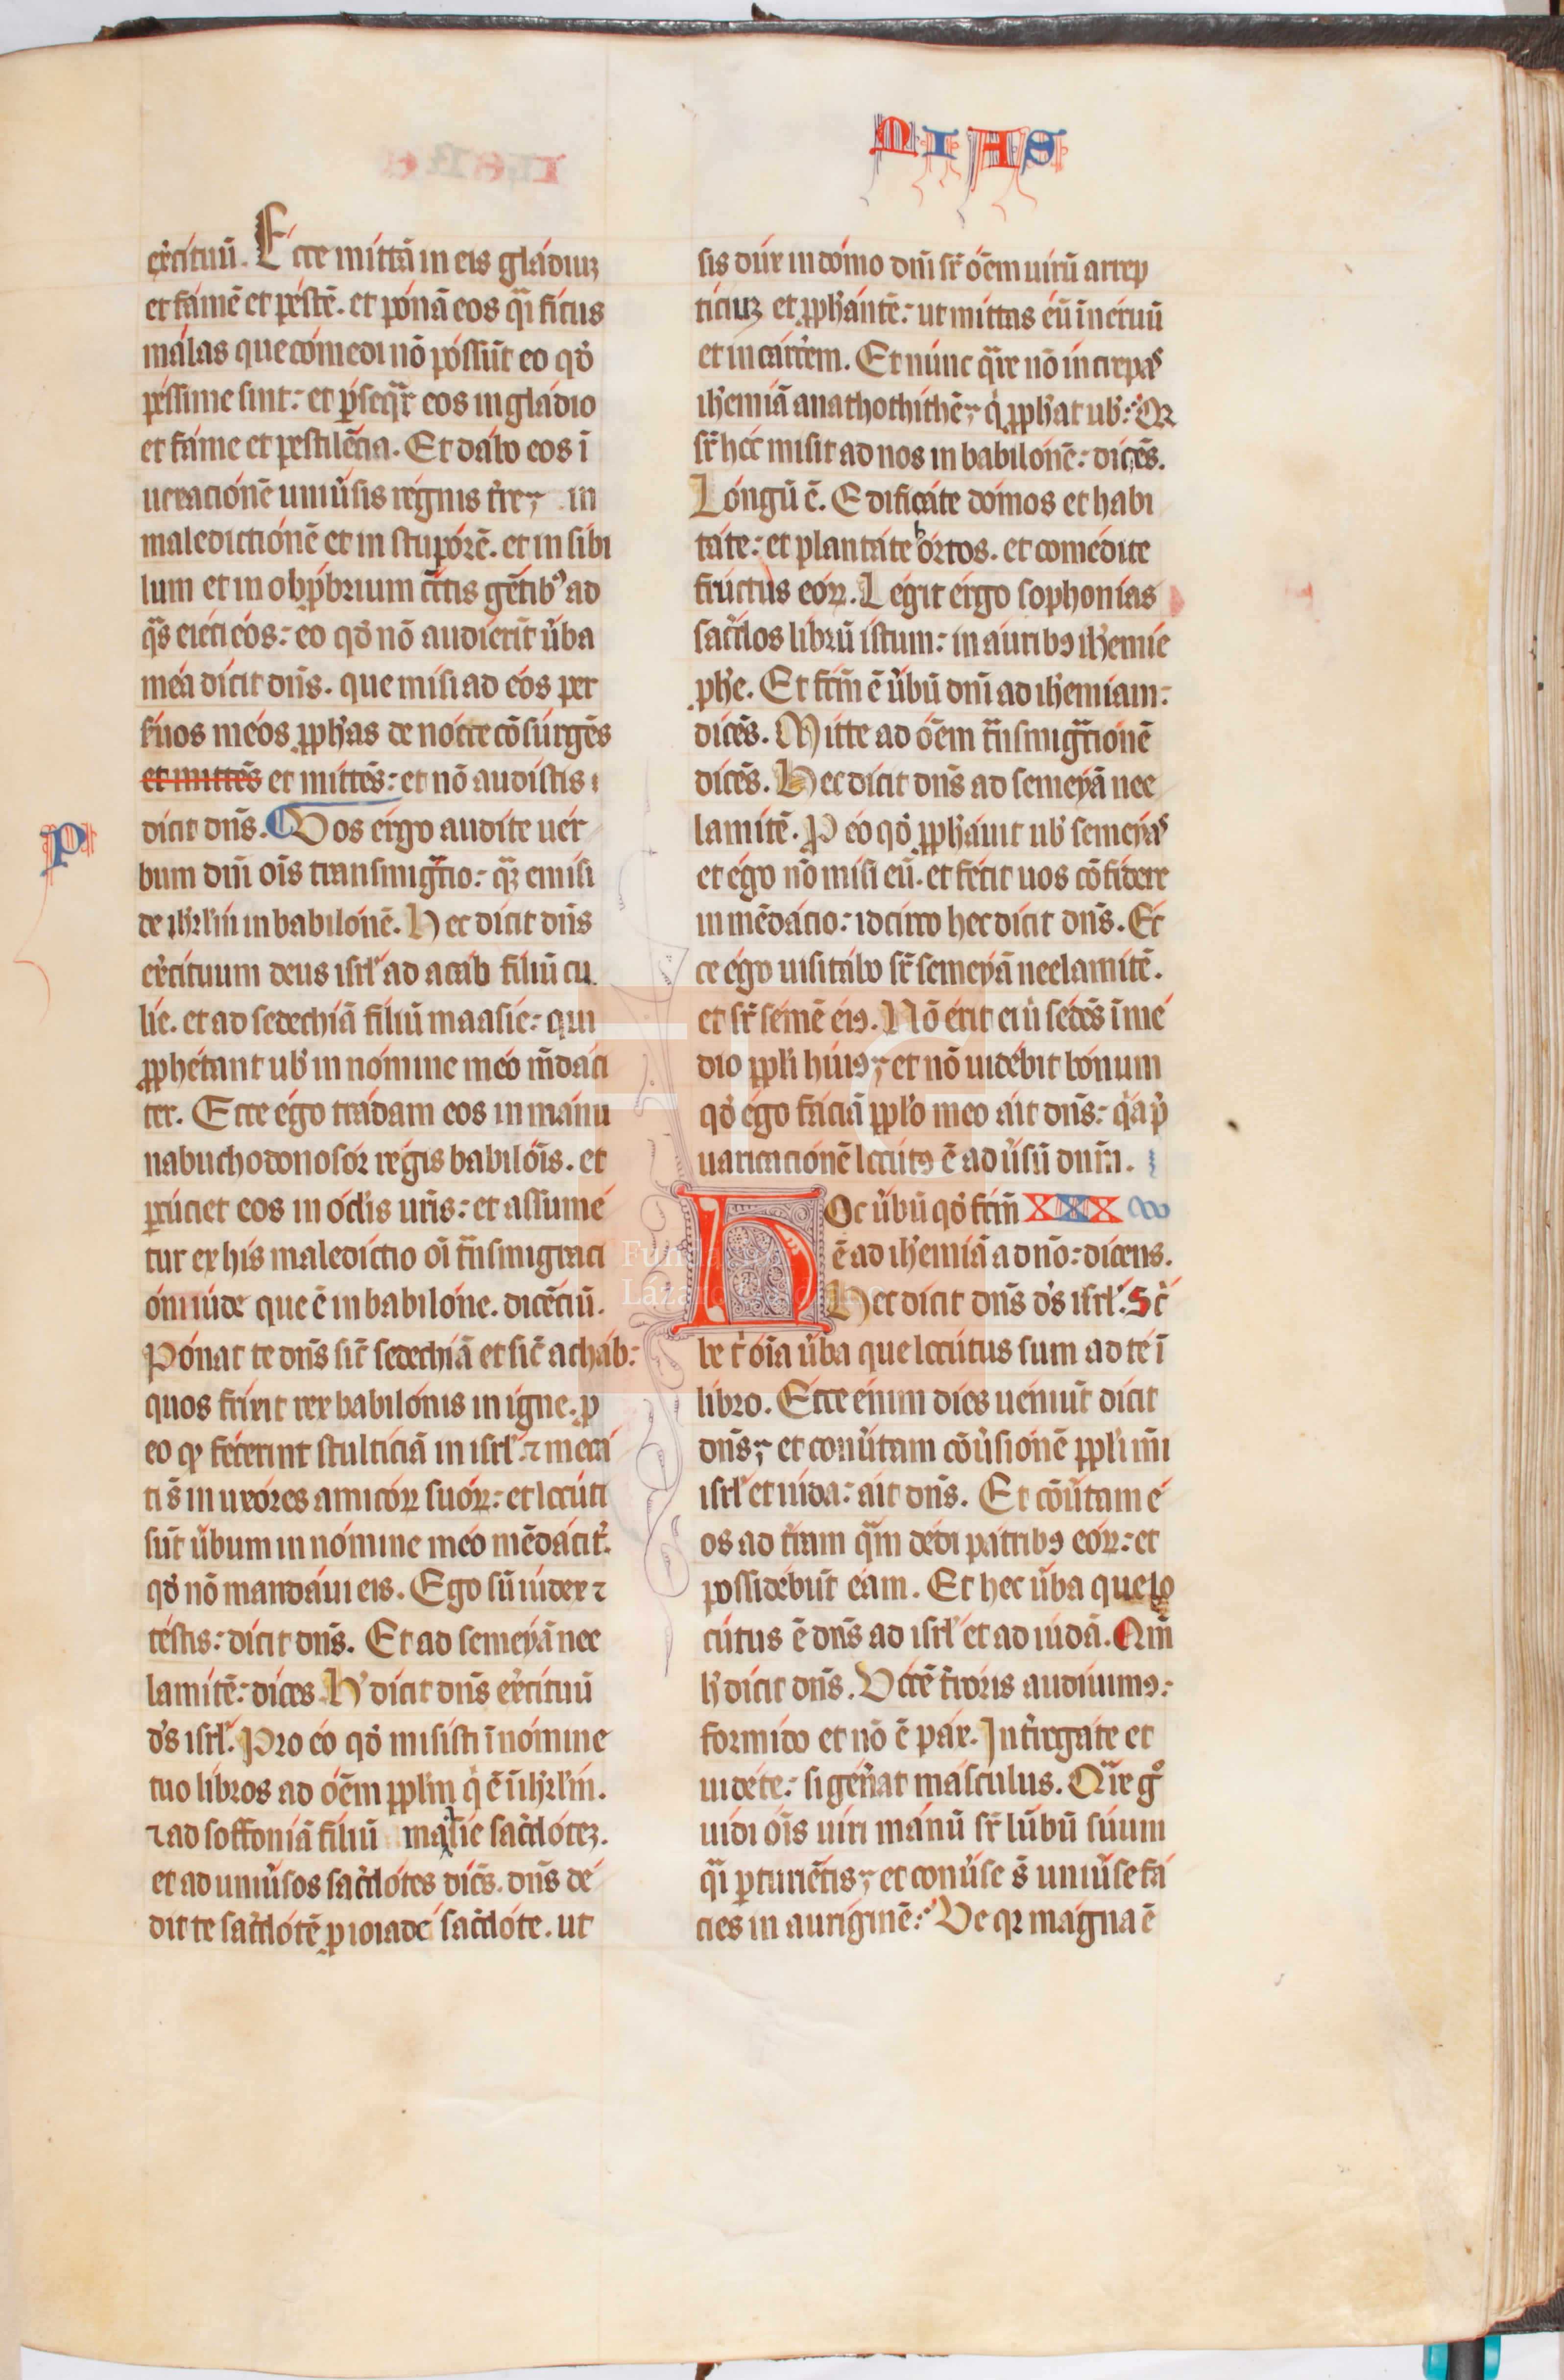 MIAS
exͥcituū. Ecce mittā in eis gladiuȝ
et famē et pestē. et ponā eos qͣi ficus
malas que comedi nō possūt eo qð
pessime sint: et ꝑseqͣr eos in gladio
et fame et pestilēcia. Et dabo eos ī
uexacionē uniűsis regnis t̄re; in
maledictionē et in stuporē. et in sibi
lum et in obp̄brium cūctis gētibꝰ ad
qͣs eieci eos: eo qð nō audierīt űba
mea dicit dn̄s. que misi ad eos per
s̄uos meos ꝓph̄as de nocte cōsurgēs
et mittēs et mittēs: et nō audistis
dicit dn̄s. Vos ergo audite uer
P
bum dn̄i oīs transmigͣtio: qͣȝ emisi
de ih̄rl̄m in babilonē. Hec dicit dn̄s
exͥcituum deus isrl̄ ad acab filiū cu
lie. et ad sedechiā filiū maasie: qui
ꝓphetant ub̄ in nomine meo m̄daci
ter. Ecce ego tradam eos in manu
nabuchodonosor regis babilōis. et
ꝑcuciet eos in oc̄lis ur̄is: et assume
tur ex his maledictio oī t̄nsmigraci
oni iude que ē in babilone. dicēciū.
Ponat te dn̄s sic̄ sedechiā et sic̄ achab:
quos frixit rex babilonis in igne. ꝓ
eo qꝫ fecerint stulticiā in isrl̄ ⁊ meca
ti s̄ in uxores amicoꝝ suoꝝ: et locuti
sūt űbum in nomine meo mēdacit̄.
qð nō mandaui eis. Ego sū iudex ⁊
testis: dicit dn̄s. Et ad semeyā nee
lamitē: dices H̄ dicit dn̄s exͥcituū
ds̄ isrl̄. Pro eo qð misisti ī nomine
tuo libros ad oēm ppl̄m q̇ ē ī ih̄rl̄m.
⁊ ad soffoniā filiū maasie sac̄doteȝ.
et ad uniűsos sac̄dotes dicēs. dn̄s de
dit te sac̄dotē ꝓ ioiade sac̄dote. ut
sis dux in domo dn̄i sr̄ oēm uirū arrep
ticiuȝ et ꝓph̄antē: ut mittas eū ī neruū
et in carcerem. Et nunc qͣre nō increpas
ih̄emiā anathothithē; q̇ ꝓph̄at ub̄: Qꝛ
sr̄ hec misit ad nos in babilonē: dicēs.
Longū ē. Edificate domos et habi
tate: et plantate hortos. et comedite
fructus eoꝝ. Legit ergo sophonias
sac̄dos librū istum: in auribꝰ ih̄emie
ꝓphe. Et fc̄m ē űbū dn̄i ad ih̄emiam:
dicēs. Mitte ad oēm t̄nsmigͣtionē
dicēs. Hec dicit dn̄s ad semeyā nee
lamitē. Ꝓ eo qð ꝓph̄auit ub̄ semeyas
et ego nō misi eū. et fecit uos cōfidere
in mēdacio: idcirco hec dicit dn̄s. Ec
ce ego uisitabo sr̄ semeyā neelamitē.
et sr̄ semē eiꝰ. Nō erit ei ű sedēs ī me
dio ppl̄i huiꝰ; et nō uidebit bonum
qð ego faciā ppl̄o meo ait dn̄s: qͥa p̄
uaricacionē locutꝰ ē adűsū dnm̄.
Hoc űbū qð fc̄m XXX
ē ad ih̄emiā a dn̄o: dicens.
Hec dicit dn̄s ds̄ isrl̄. Sc̄
be t̄ oīa űba que locutus sum ad te ī
libro. Ecce enim dies ueniūt dicit
dn̄s; et conűtam cōűsionē ppl̄i m̄i
isrl̄ et iuda: ait dn̄s. Et cōűtam e
os ad t̄ram qͣm dedi patribꝰ eoꝝ: et
possidebūt eam. Et hec űba que lo
cutus ē dn̄s ad isrl̄ et ad iudā. Qm̄
h̄ dicit dn̄s. Vocē t̄roris audiuimꝰ:
formido et nō ē pax. Int̄rogate et
uidete: si gen̄at masculus. Qͣre gͦ
uidi oīs uiri manū sr̄ lūbū suum
qͣi ꝑturiētis; et conűse s̄ uniűse fa
cies in auriginē: Ve qꝛ magna ē